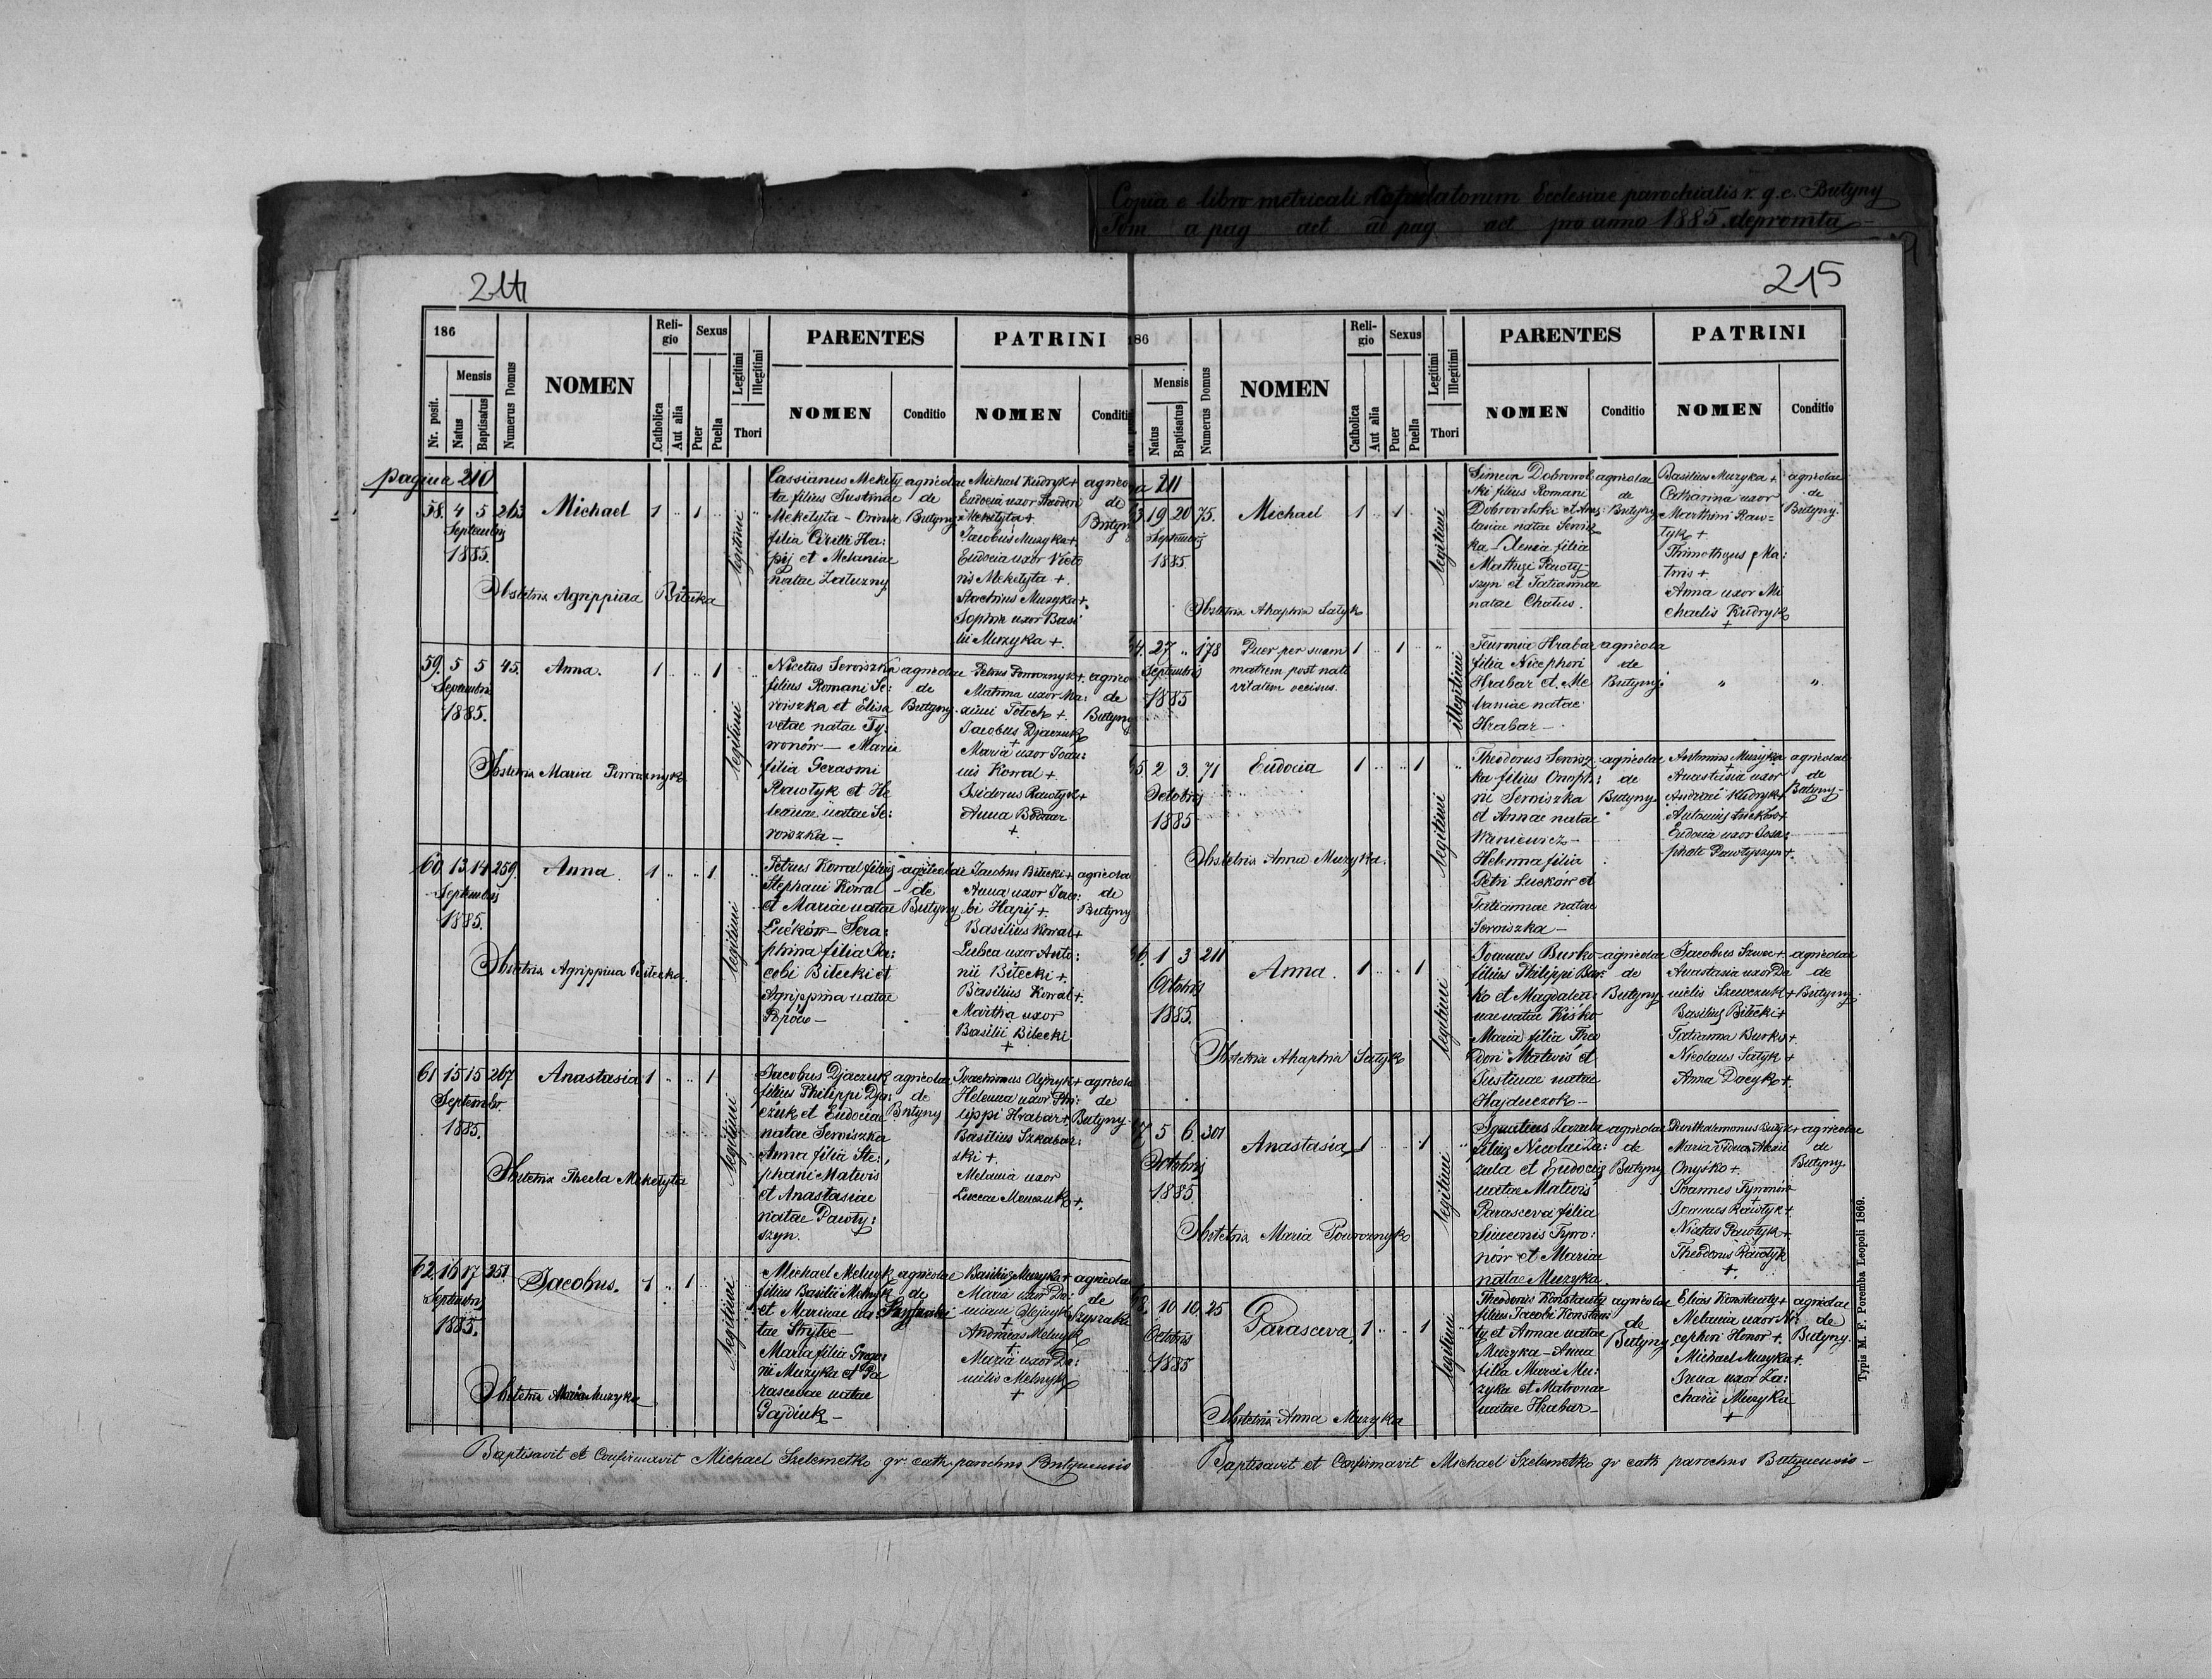 Copia e libro metricali Copulatorum Ecclesiae parochialis r. g. c. Butyny
Tom a pag act ad pag act pro anno 1885. depromta
214
186
Nr. posit.
Mensis
Natus
Baptisatus
Numerus Domus
NOMEN
Religio
Catholica
Aut alia
Sexus
Puer
Puella
Legitimi
Illegitimi
Thori
PARENTES
NOMEN
Conditio
PATRINI
NOMEN
Conditio
pagina 210
58. 4 5 263
Septembris
1885.
Michael
1 .. 1 ..
legitimi
Cassianus Mekely
ta filius Justinae
Mekelyta - Orinia
filia Cirilli Ha:
pij et Melaniae
natae Załuzny
agricolae
de
Butyny
Michael Kudryk +
Eudocia uxor Theodori
Mekelyta +
Jacobus Muzyka +
Eudocia uxor Victo
ris Mekelyta +.
Muzyka +.
Sophia uxor Basi
lii Muzyka +.
agricolae
de
Butyny
Obstetrix Agrippina Bilecka
59. 5 5 45.
Septembris
1885.
Anna.
1 .. .. 1
legitimi
Nicetus Serwiszka
filius Romani Se:
rwiszka et Elisa
vetae natae Ty:
monów — Maria
filia Gerasmi
Pawłyk et He
lenae natae Se:
rwiszka —
agricolae
de
Butyny.
Petrus Powroznyk +.
Matrona uxor Ma:
ximi Totoch +.
Jacobus Djaczuk
+
Maria uxor Joan:
nis Kowal +.
Isidorus Pawłyk +
Anna Bodnar
+.
agricolae
de
Butyny
Obstetrix Maria Powroznyk
60. 13 14 259.
Septembris
1885.
Anna
1 .. .. 1
legitimi
Petrus Kowal filius
Stephani Kowal
et Mariae natae
Łućków - Sera:
phina filia Ja:
cobi Bilecki et
Agrippina natae
Popów —
agricolae
de
Butyny
Jacobus Bilecki +
Anna uxor Jaco:
bi Hapij +.
Basilius Kowal +
Lubca uxor Anto:
nii Bilecki +.
Basilius Kowal +.
Martha uxor
Basilii Bilecki
+
agricolae
de
Butyny
Obstetrix Agrippina Bilecka.
61 15 15 267
Septembr.
1885.
Anastasia
1 .. .. 1
legitimi
Jacobus Djaczuk
filius Philippi Dja:
czuk et Eudociae
natae Serwiszka
Anna filia Ste:
phani Matwis
et Anastasiae
natae Pawły:
szyn.
agricolae
de
Butyny
Joachimus Olijnyk +
Helenna uxor Phi:
lippi Hrabar +
Basilius Szkabar:
zki +.
Melania uxor
Luccae Menczuk +.
agricolae
de
Butyny
Obstetrix Thecla Mekelyta
62. 16 17 251
Septembris
1885.
Jacobus.
1 .. 1 ..
legitimi
Michael Melnyk
filius Basilii Melnyk
et Marinae na
tae Stryłec —
Maria filia Grego
rii Muzyka et Pa
rascevae natae
Gajdiuk —
agricolae
de
Szyszaki
Basilius Muzyka +
Maria uxor Da:
miani Olijnyk
+
Andreas Melnyk
+.
Maria uxor Da:
nilis Melnyk
+
agricolae
de
Szyszaki
Obstetrix Maria Muzyka
Baptisavit et Confirmavit Michael Szelemetko gr. cath. parochus Butynensis
215
186
Nr. posit.
Mensis
Natus
Baptisatus
Numerus Domus
NOMEN
Religio
Catholica
Aut alia
Sexus
Puer
Puella
Legitimi
Illegitimi
Thori
PARENTES
NOMEN
Conditio
PATRINI
NOMEN
Conditio
a 211
3. 19 20 75.
Septembris
1885
Michael
1 .. 1 ..
legitimi
Simeon Dobrowol
ski filius Romani
Dobrowolski et Anas
tasiae natae Serwisz
ka - Xenia filia
Matthei Pawły-
szyn et Tatiannae
natae Chatus.
agricolae
de
Butyny
Basilius Muzyka +
Catharina uxor
Marthini Paw=
łyk +.
Thimotheus Ma:
twis +.
Anna uxor Mi
chaelis Kudryk
+
agricolae
de
Butyny.
Obstetrix Ahaphia Satyk
4. 27 .. 178
Septembris
1885
Puer per suam
matrem post nati
vitatem occisus.
1 .. 1 ..
illegitimi
Feuronia Hrabar
filia Nicephori
Hrabar et Me
laniae natae
Hrabar —
agricola
de
Butyny.
5. 2 3. 71
Octobris
1885
Eudocia
1 .. .. 1
legitimi
Theodorus Serwisz
ka filius Onuph:
rii Serwiszka
et Annae natae
Waniewicz -
Helenna filia
Petri Luckow et
Tatiannae natae
Serwiszka —
agricolae
de
Butyny
Antonius Muzyka
+
Anastasia uxor
Andreae Kudryk +
Antonius Łuckow +
Eudocia uxor Josa:
phati Pawłyszyn +.
agricolae
de
Butyny
Obstetrix Anna Muzyka.
6. 1 3 211
Octobris
1885.
Anna.
1 .. .. 1
legitimi
Joannes Burko
filius Philippi Bur
ko et Magdale
nae natae Kiśko
Maria filia Theo
dori Matwis et
Justinae natae
Hajduczok —
agricolae
de
Butyny
Jacobus Szwec +
Anastasia uxor Da
nielis Szewczuk +
Basilius Bilecki +
Tatianna Burko +.
Nicolaus Satyk +
Anna Dacyk +.
agricolae
de
Butyny
Obstetrix Ahaphia Satyk
7. 5 6. 301
Octobris
1885.
Anastasia
1 .. .. 1
legitimi
Ignatius Zazula
filius Nicolai Za:
zula et Eudociae
natae Matwis
Parasceva filia
Simeonis Tymo:
nów et Mariae
natae Muzyka.
agricolae
de
Butyny
Maria vidua Alexii
Onyśko +.
Joannes Tymonów
+
Joannes Pawłyk +.
Nicetas Pawłyk +.
Theodorus Pawłyk
+.
agricolae
de
Butyny
Obstetrix Maria Powroznyk
8. 10 10. 25
Octobris
1885
Parasceva
1 .. .. 1
legitimi
Theodorus Konstanty
filius Jacobi Konstan
ty et Annae natae
Muzyka - Anna
filia Marci Mu:
zyka et Matronae
natae Hrabar —
agricolae
de
Butyny
Elias Konstanty +
Melania uxor Ni:
cephori Honor +.
Michael Muzyka +.
uxor Za:
charii Muzyka
+
agricolae
de
Butyny.
Obstetrix Anna Muzyka
Baptisavit et Confirmavit Michael Szelemetko gr cath parochus Butynensis -
Typis M. F. Poremba Leopoli 1869.